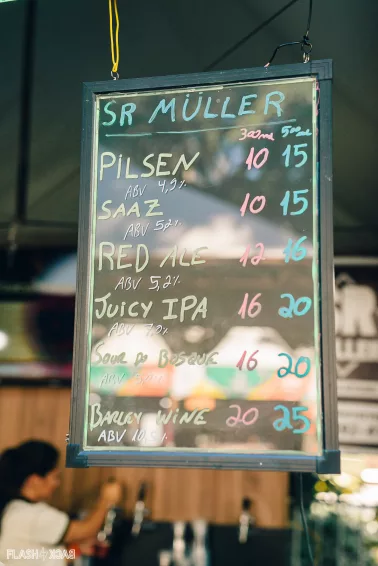 SR MÜLLER
300ml 500ml
PILSEN 10 15
ABV 4,9%
SAAZ 10 15
ABV 5,2%
RED ALE 12 16
ABV 5,2%
JUICY IPA 16 20
ABV 7,0%
SOUR DO BOSQUE 16 20
ABV
BARLEY WINE 20 25
ABV 10,5%
FLASH